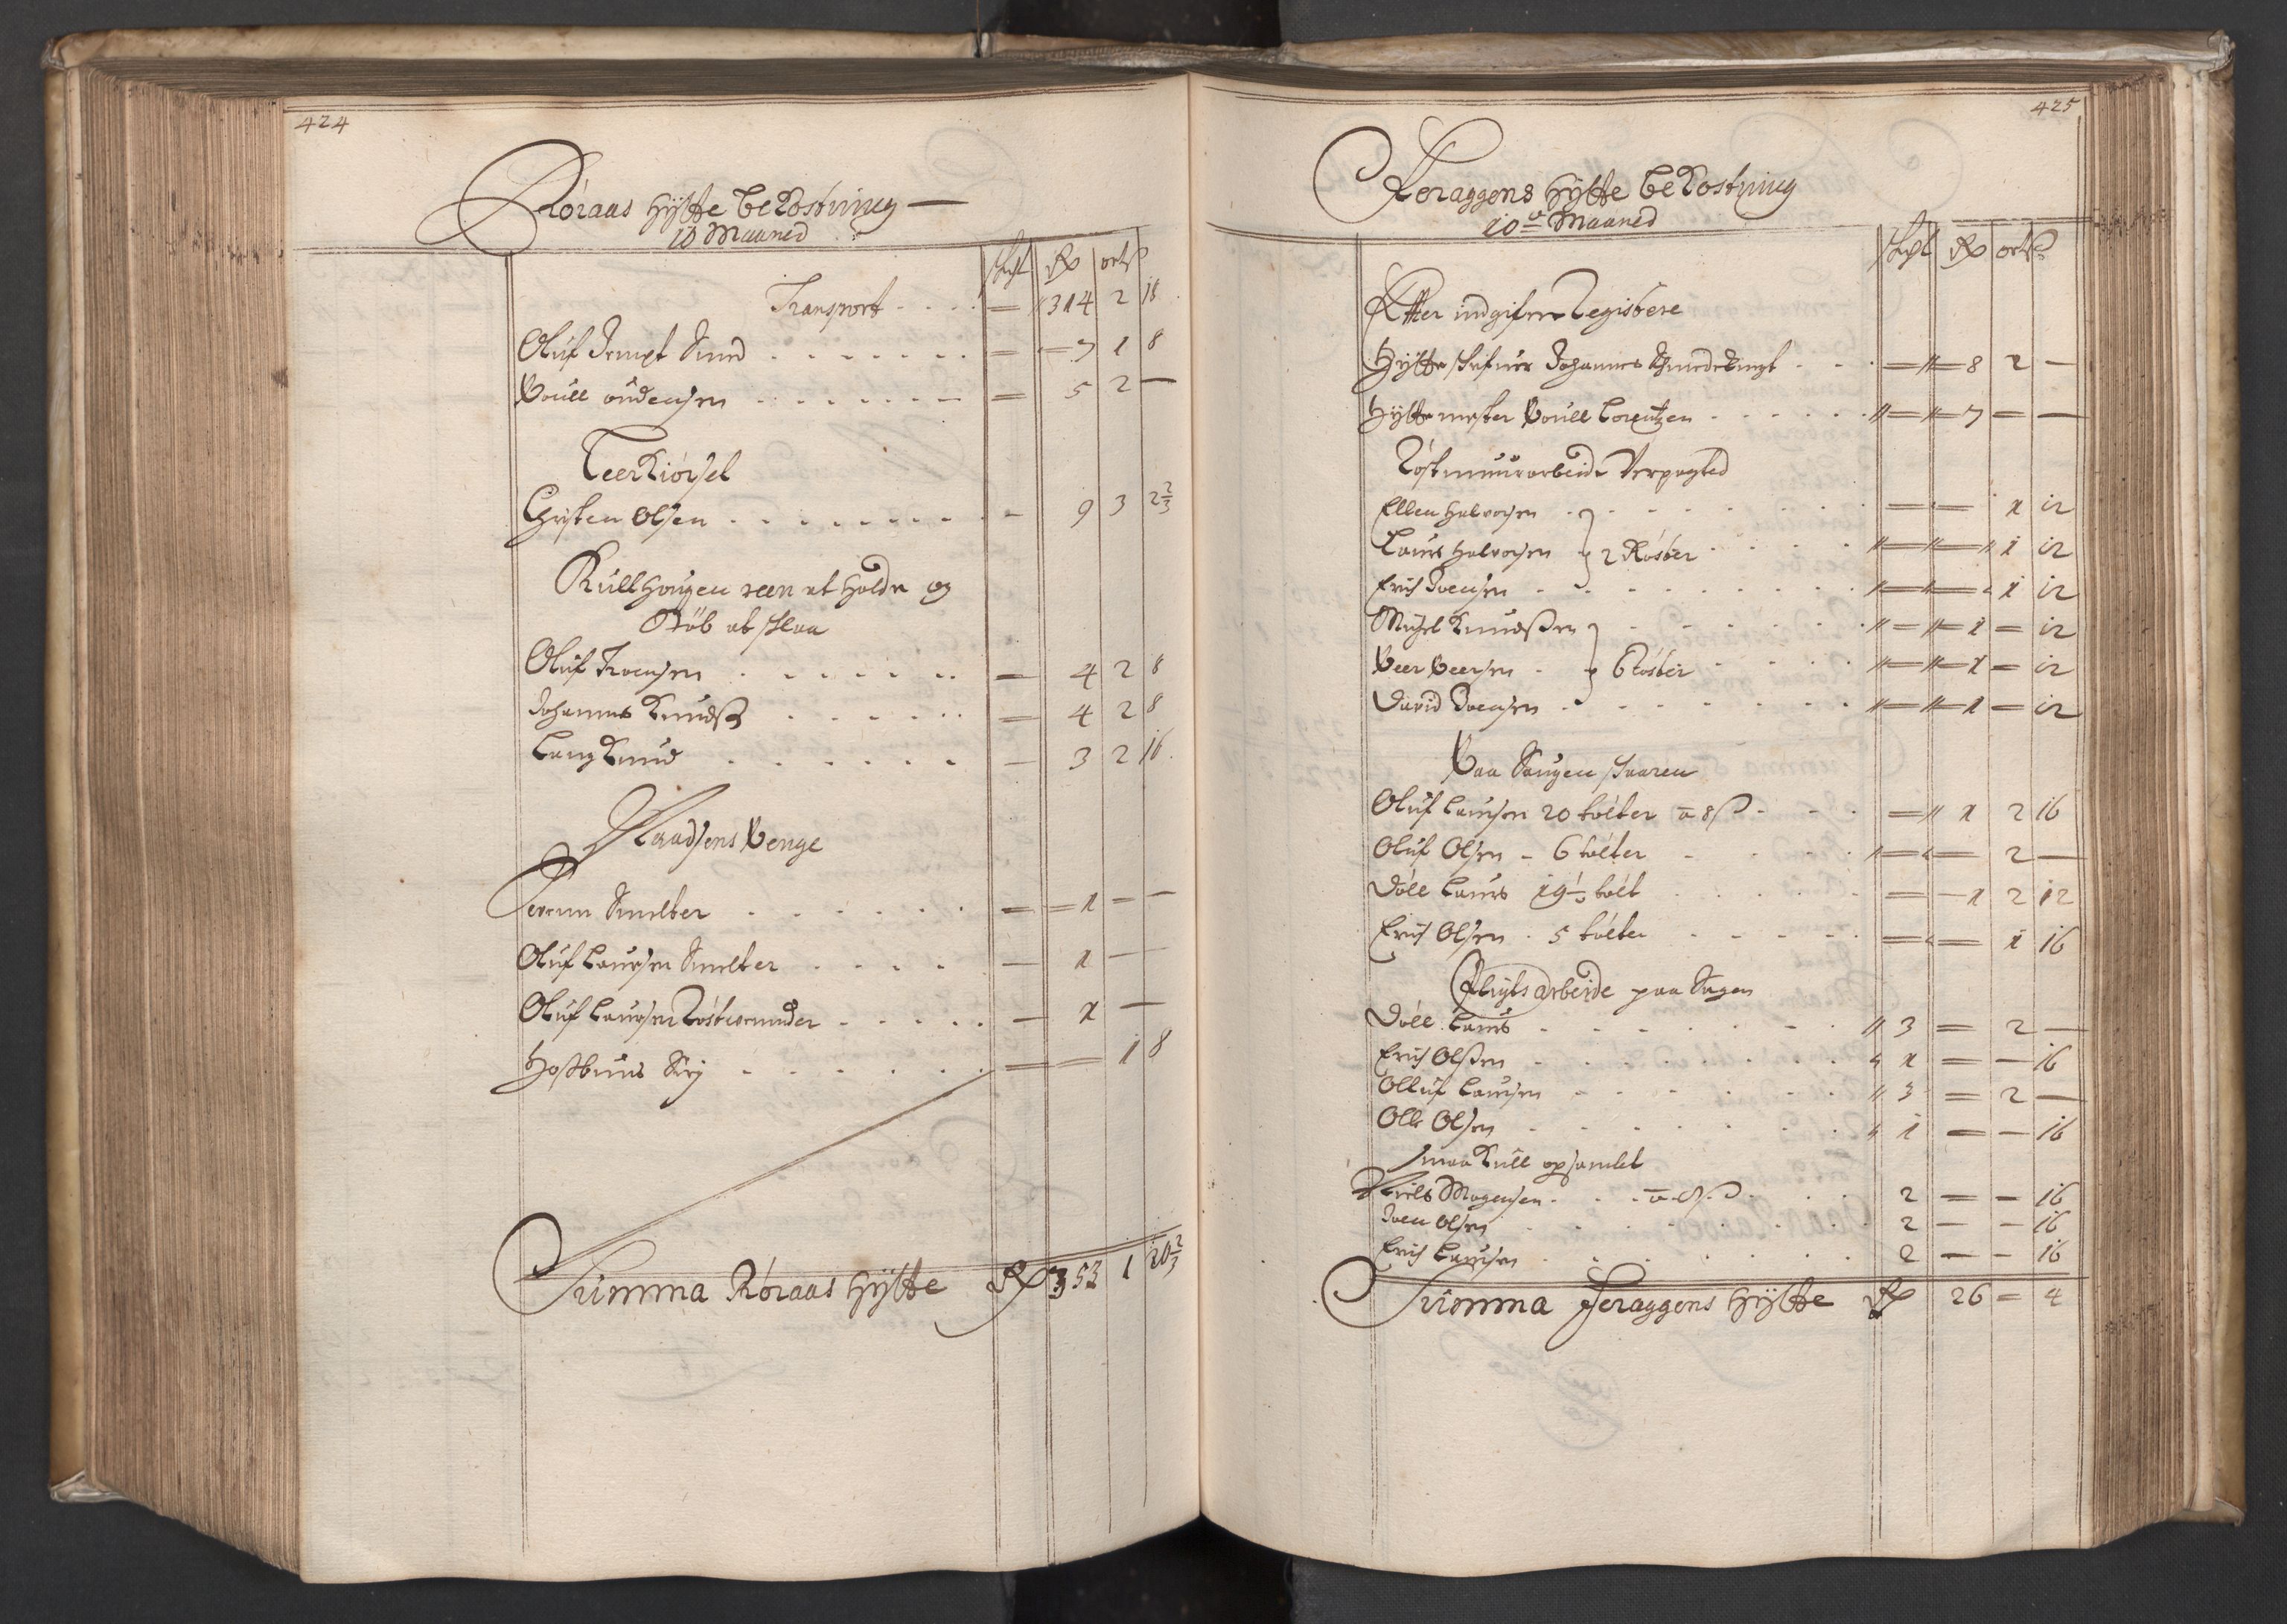 424
Röraas Hÿtte beKostning —
10 Maaned
Rd ort ß
Transport — 314 2 18
Oluf Jempt Smed — 7 1 8
Poull oudensen — 5 2 —
TeerKiörsel
Christen Olsen — 9 3 2 2/3
Kullhougen reen at holde og
Stöb at slaa
Oluf Iversen — 4 2 8
Johannes Knudß — 4 2 8
Lang Knud — 3 2 16
Maadsens Penge
Smelter — 1 — —
Oluf Laursen Smelter — 1 —
Oluf Laursen Röstvender — 1 —
Siri — — 1 8
Summa Röraas Hÿtte Rd 353 1 20 2/3
425
Feraggens Hÿtte beKostning
10de Maaned
Rd ort ß
Efter indgifne Registere
Hÿtte skrifver Johannes — 8 2 —
Hÿttemester Poull Lorentzen — 7 — —
Röstmuurarbeide Verpagted
Ellen Halvorsen — — 1 12
Laurs Halvorsen 2 Röster — — 1 12
Erich Iversen — — 1 12
Michel Knudßen — 1 — 12
Peer Peersen 6 Röster — 1 — 12
David Iversen — 1 — 12
Paa Saugen skaaren
Oluf Laursen 20 tölter a 8 ß — 1 2 16
Oluf Olsen — 6 tölter — — 2 —
Döll Laurs 19 1/2 tölt — 1 2 12
Erich Olsen 5 tölter — — 1 16
arbeide paa Sagen
Döll Laurs 3 — 2 —
Erich Olßen 1 — — 16
Olluf Laursen 3 — 2 —
Olle Olsen 1 — — 16
smaa Kull opsamlet
Niels Mogensen a 8 ß 2 — — 16
Iver Olsen 2 — — 16
Erich Laursen 2 — — 16
Summa Feraggens Hÿtte Rd 26 — 4